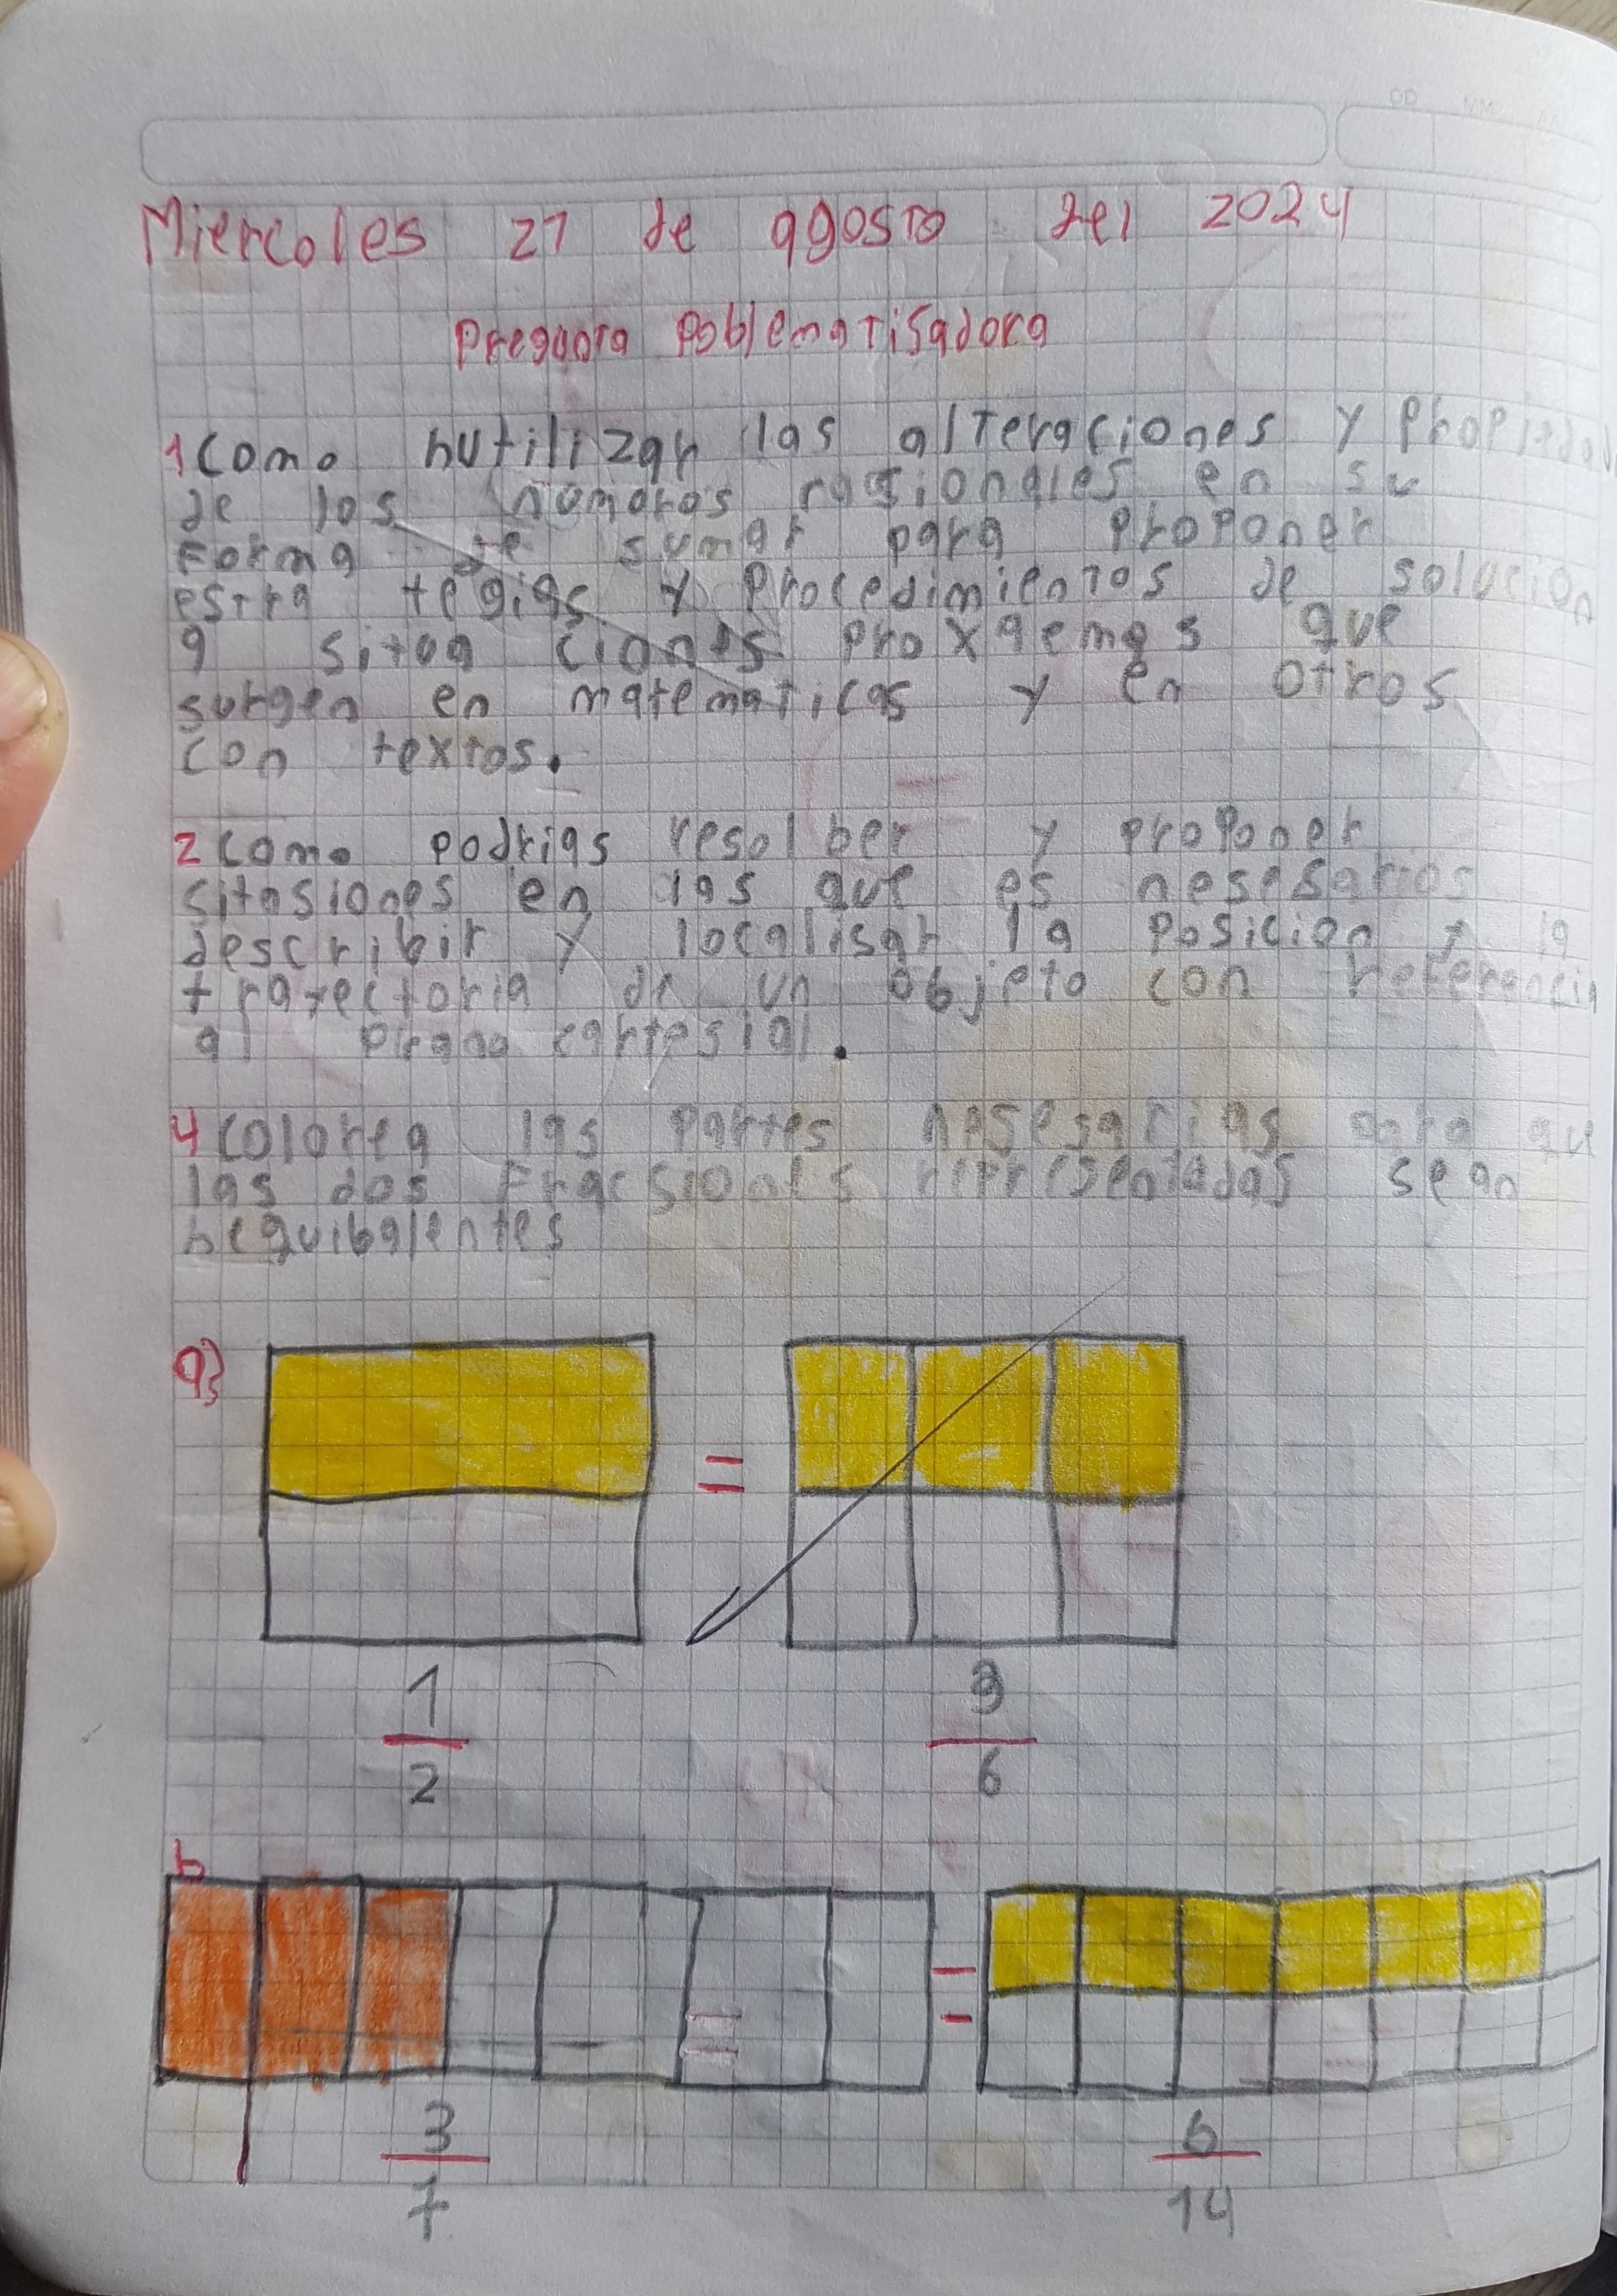 Miercoles 27 de agosto del 2024
Pregunta Poblematisadora
1 Como hutilizar las alteraciones y propiedad
de los numoros rasionales en su
Forma de sumar para proponer
estra tegias y Procedimientos de solucion
a situa ciones proxqemas que
surgen en matematicas y en otros
con textos.
2 Como podrias resol ber y proponer
sitasiones en las que es nesesarios
describir y localisar la posicion y la
trayectoria de un objeto con referencia
al cartesial.
4 Colorea las partes nesesarias para que
las dos Fracsiones representadas sean
hequibalentes
a}
=
1
2
3
6
b
=
3
7
6
14